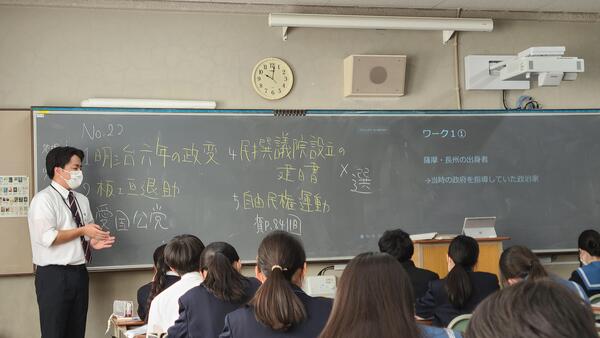 No.22
1 明治六年の政変
2 板垣退助
愛国公党
4 民撰議院設立の
建白書
×選
5 自由民権運動
ワーク1①
薩摩・長州の出身者
→当時の政府を指導していた政治家